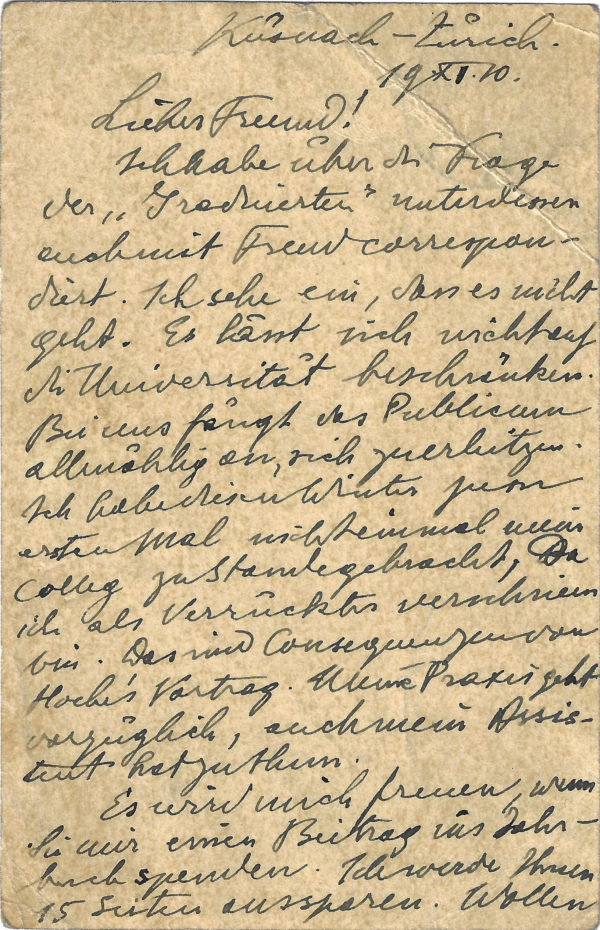 Küsnach – Zürich.
19 XI. 10.
Lieber Freund!
Ich habe über die Frage
der „Graduierten" unterdessen
auch mit Freud correspon-
diert. Ich sehe ein, dass es nicht
geht. Es lässt sich nicht auf
die Universität beschränken.
Bei uns fängt das Publicum
allmählig an, sich zu erhitzen.
Ich habe diesen Winter zum
ersten Mal nicht einmal mein
Colleg zu Stande gebracht, Da
ich als Verrückter verschrieen
bin. Das sind Consequenzen von
Hoche's Vortrag. Meine Praxis geht
vorzüglich, auch mein Assis-
tent hat zu thun.
Es wird mich freuen, wenn
Sie mir einen Beitrag ins Jahr-
buch spenden. Ich werde Ihnen
15 Seiten aussparen. Wollen